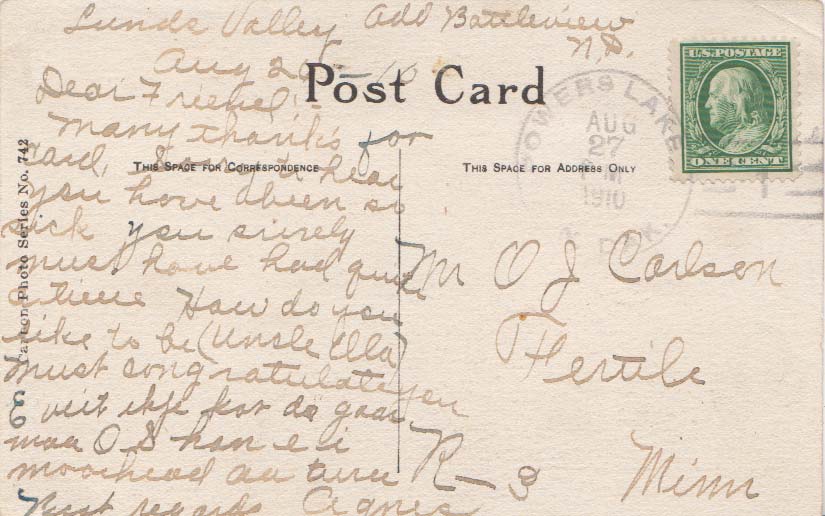 Lunds Valley Add Battleview
N.D.
Aug 26 - 10
Dear Friend!
Many thanks for
card, Sorry to hear
you have been so
sick you surely
must have had quite
a time How do you
like to be (Uncle Ella)
Must congratulate you
E veit ikje kor da gaar
maa O S han e i
moorhead au
Best regards Agnes
Post Card
THIS SPACE FOR CORRESPONDENCE
THIS SPACE FOR ADDRESS ONLY
Photo Series No. 742
POWERS LAKE
AUG
27
1910
N. DAK.
U.S. POSTAGE
ONE CENT
Mr O J Carlson
Fertile
R-3 Minn